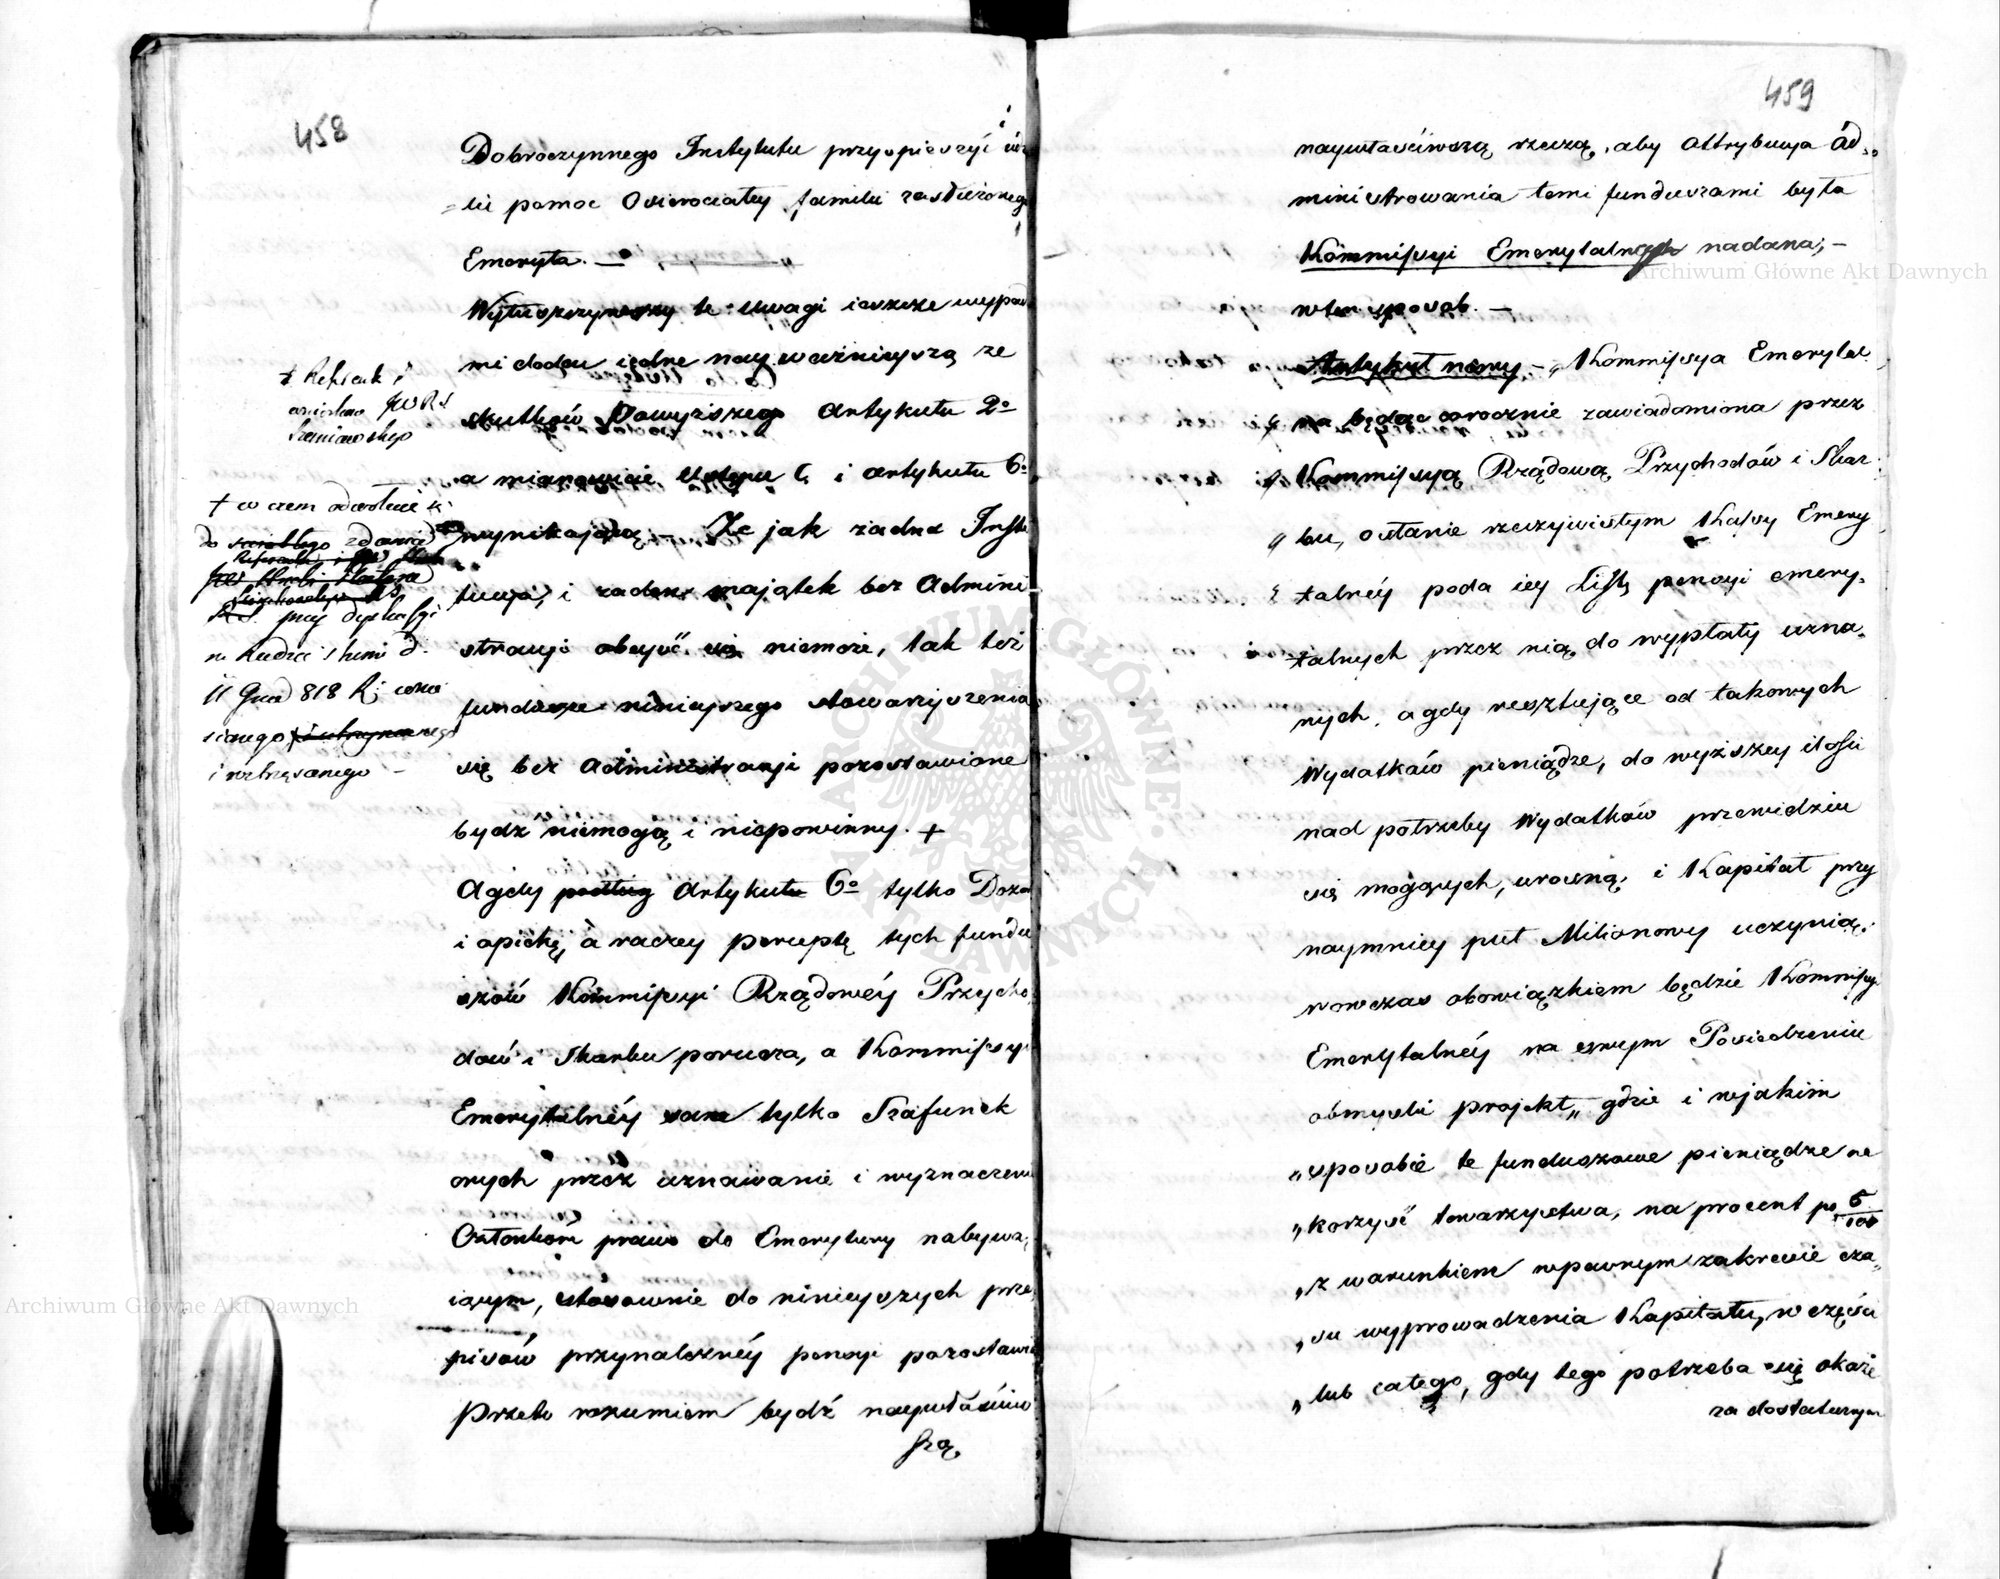 458
Dobroczynnego Instytutu przyspieszyć i
lić pomoc Osierociałey familii zasłużonego
Emeryta. —
Wytłuszczywszy te uwagi ieszcze wypada
mi dodać iedne nayważnieyszą ze
skutków Powyższego Artykułu 2º
a mianowicie Ustępu C. i artykułu 6º
wynikającą Że jak żadna Insty
tucya, i żaden majątek bez Admini
stracyi obeyść się niemoże, tak też
fundusze ninieyszego stowarzyszenia
się bez Administracyi pozostawione
bydź niemogą i niepowinny. +
A gdy podług Artykułu 6º tylko Dozór
i opiekę, a raczey perceptę tych fundu
szów Kommissyi Rządowéy Przycho
dów i Skarbu porucza, a Kommissyi
Emerytalnéy sam tylko Szafunek
onych przez uznawanie i wyznaczenie
Członków prawo do Emerytury nabywa
iącym, stosownie do ninieyszych prze
pisów przynależnéy pensyi pozostawia
Przeto rozumiem bydź naywłaściw
szą
+ w czem odwołuię się
do zdania
przy dyskussyi
w Radzie Stanu d.
11 Grud 818 R.
i wstrzymanego —
459
naywłaściwszą rzeczą, aby Attrybucya Ad
ministrowania temi funduszami była
Kommissyi Emerytalney nadana; —
w ten sposób. —
Artykuł nowy. — „Kommissya Emerytal
„na będąc corocznie zawiadomiona przez
„Kommissyą Rządową Przychodów i Skar
„bu, o stanie rzeczywistym Kassy Emery
talnéy poda iey Listę pensyi emery
talnych przez nią do wypłaty uzna
nych, a gdy resztujące od takowych
Wydatków pieniądze, do wyższey ilości
nad potrzeby Wydatków przewidzieć
się mogących, urosną, i Kapitał przy
naymniey puł Milionowy uczynią,
wowczas obowiązkiem będzie Kommissyi
Emerytalnéy na swym Posiedzeniu
obmyślić projekt, gdzie i w jakim
„sposobie te funduszowe pieniądze na
„korzyść towarzystwa, na procent po 5/100
„z warunkiem w pewnym zakresie cza
„su wyprowadzenia Kapitału, w części
„lub całego, gdy tego potrzeba się okaże
za dostatecznym
Archiwum Główne Akt Dawnych
Archiwum Główne Akt Dawnych
ARCHIWUM GŁÓWNE AKT DAWNYCH